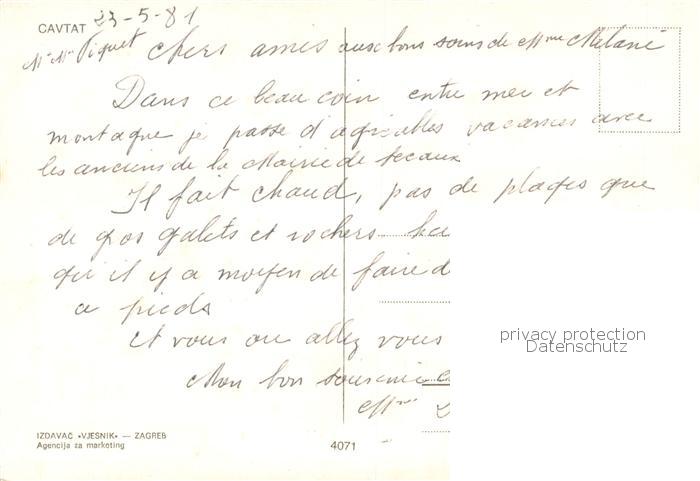 CAVTAT 23-5-81
Mr Mme Piquet chers amis aux bons soins de Mme Melani
Dans ce beau coin entre mer et
montagne je passe d'agréables vacances avec
les anciens de la Mairie de Sceaux
Il fait chaud, pas de plages que
de gros galets et rochers
qu'il y a moyen de faire d
a pieds
et vous ou allez vous
Mon bon souvenir
Mme
privacy protection
Datenschutz
IZDAVAČ «VJESNIK» — ZAGREB
Agencija za marketing
4071